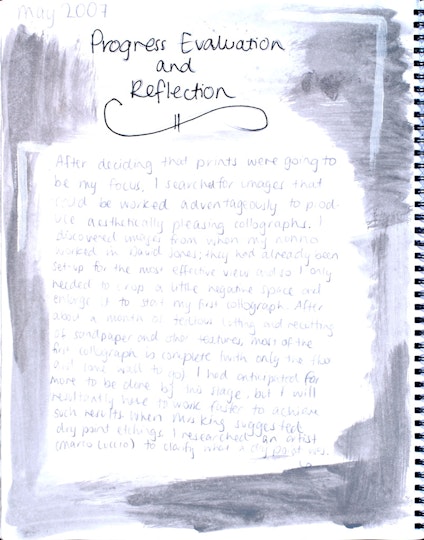 May 2007
Progress Evaluation
and
Reflection
After deciding that prints were going to
be my focus, I searched for images that
could be worked advantageously to prod-
uce aesthetically pleasing collographs. I
discovered images from when my nonno
worked in David Jones; they had already been
set-up for the most effective view and so I only
needed to crop a little negative space and
enlarge it to start my first collograph. After
about a month of tedious cutting and recutting
of sandpaper and other textures, most of the
first collograph is complete (with only the floor
and wall to go) I had anticipated for
more to be done by this stage, but I will
realistically have to work faster to achieve
such results. When suggested
dry point etchings, I researched an artist
(Mario) to clarify what a dry point was.